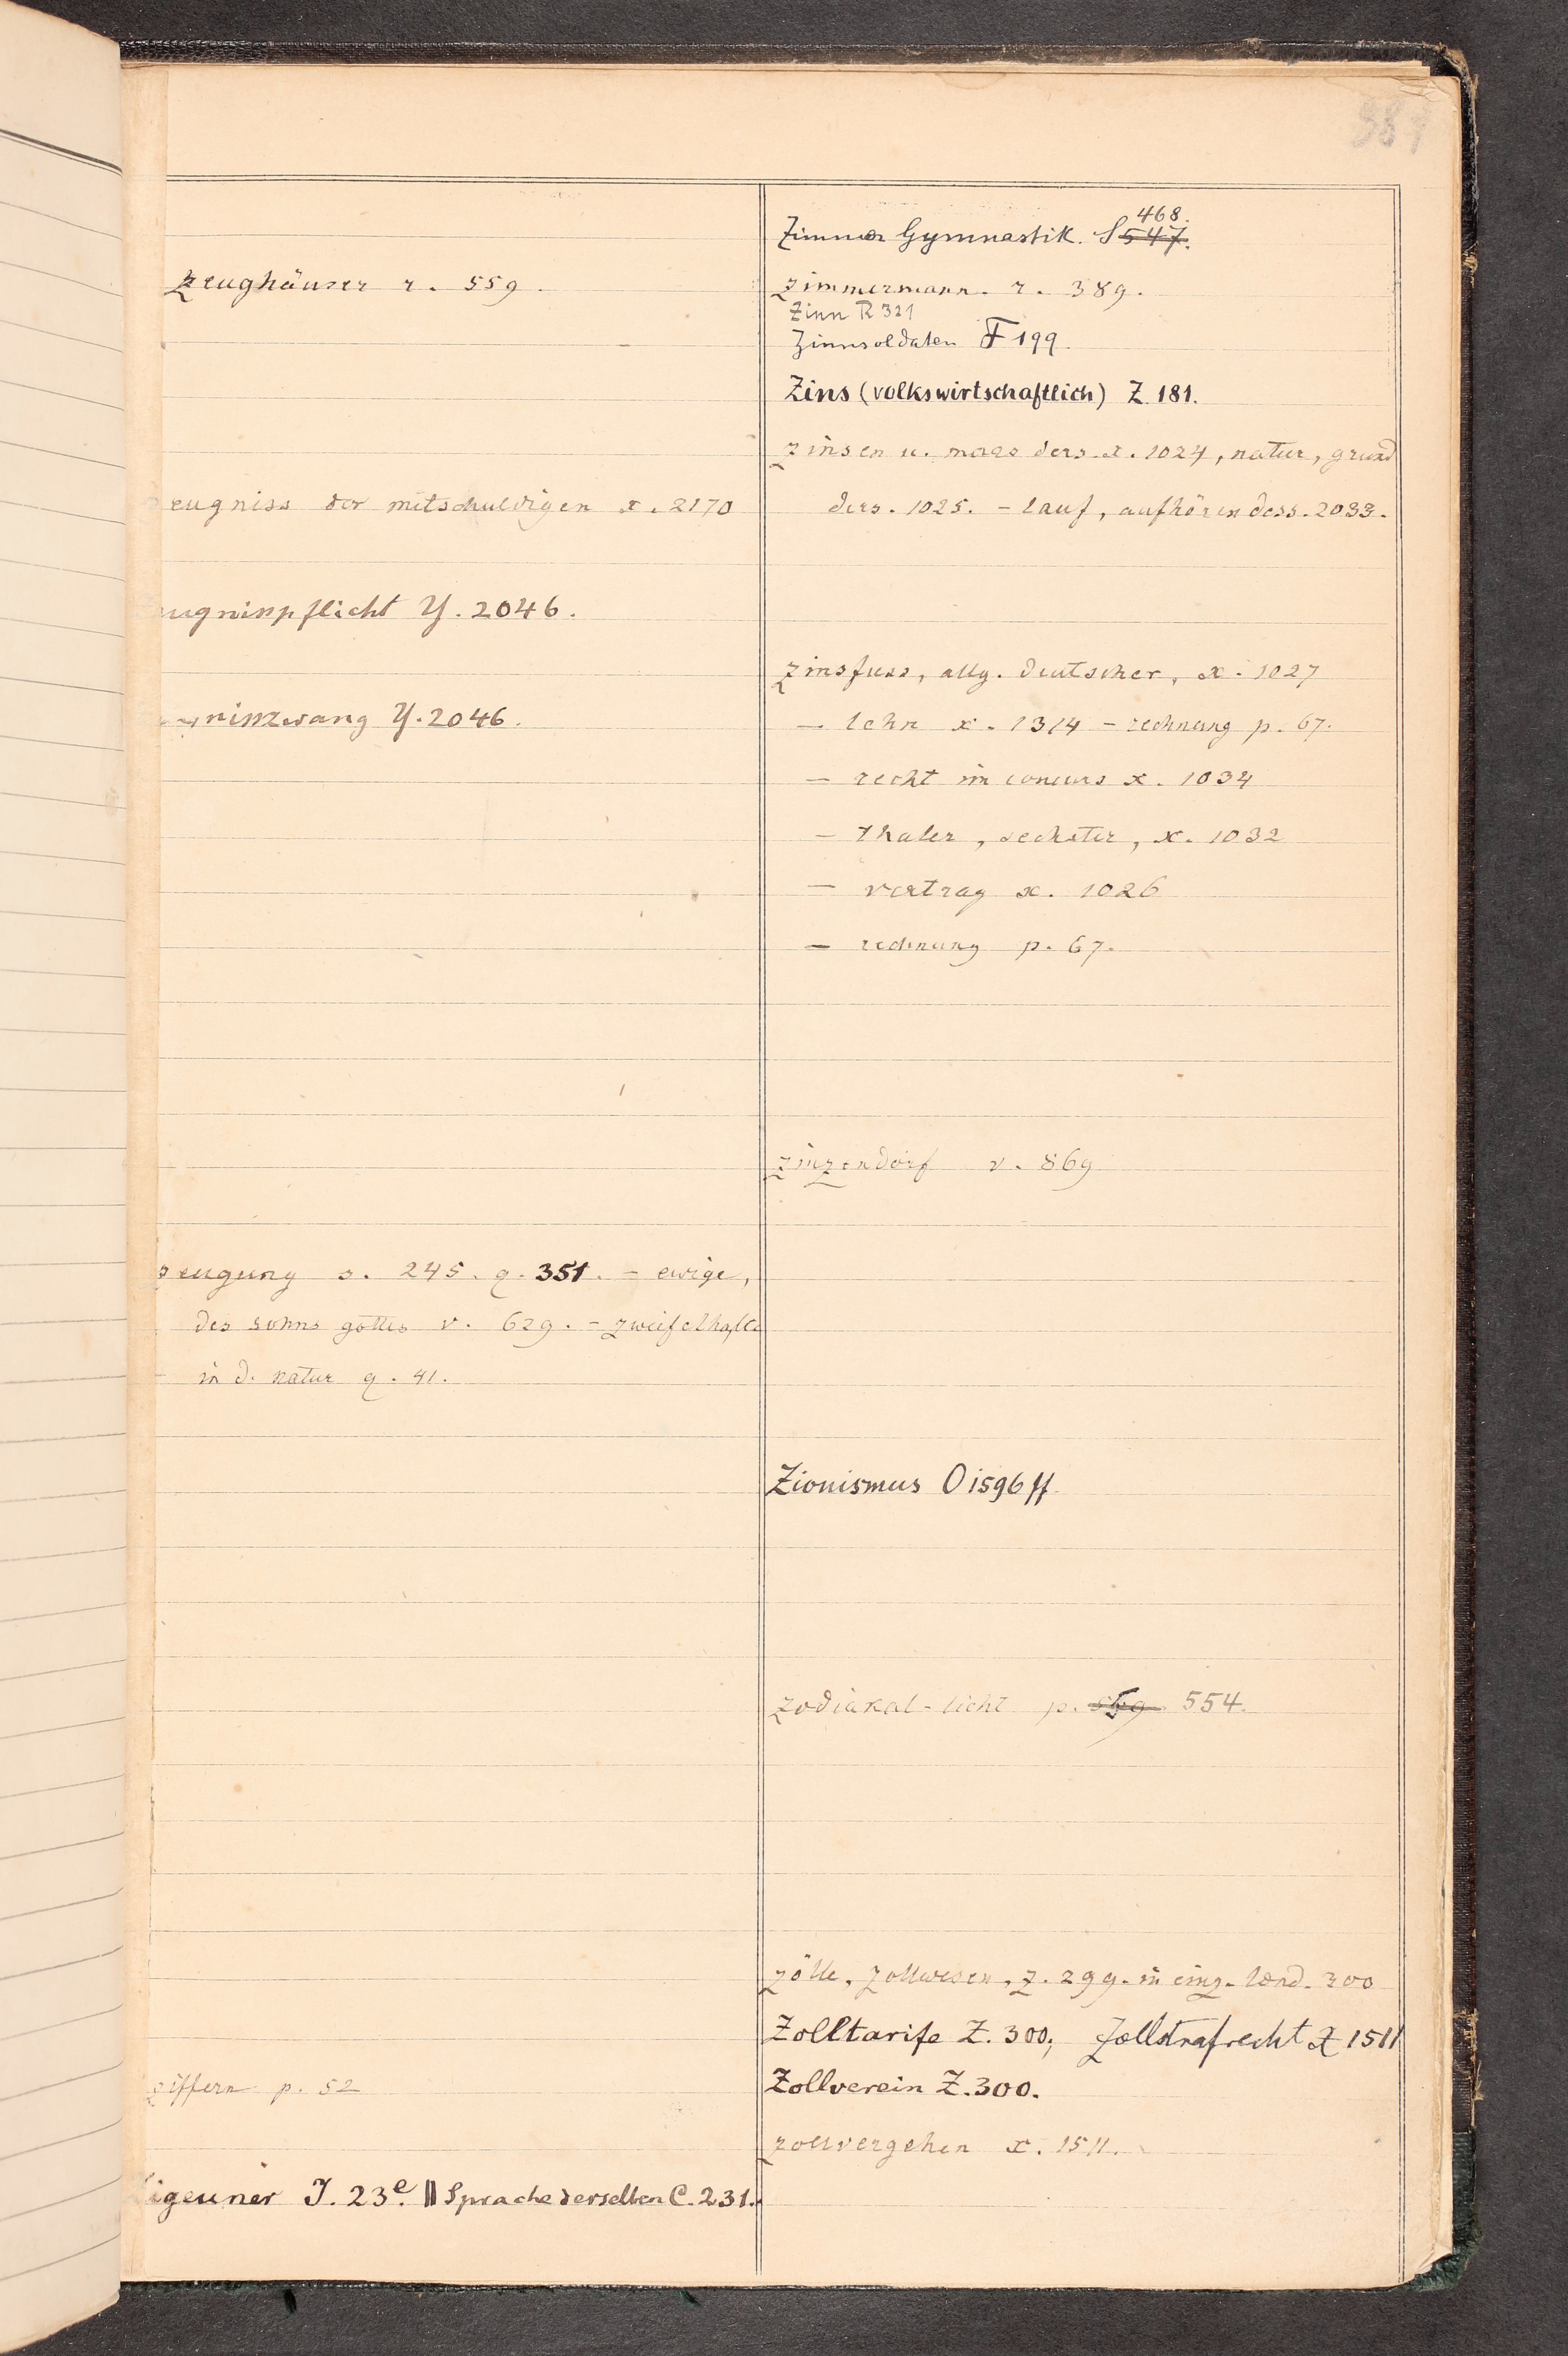 381
zeughäuser r. 559.
eugniss der mitschuldigen x. 2170
ugnisspflicht Y. 2046.
nisszwang Y. 2046.
zeugung s. 245. q. 351. – ewige,
des sohns gottes v. 629. – zweifelhafte
in d. natur q. 41.
ziffern p. 52
igeuner J. 23e. || Sprache derselben C. 231.
Zimmer Gymnastik. S 547. 468.
zimmermann. r. 389.
Zinn R 321
Zinnsoldaten F 199.
Zins (volkswirtschaftlich) Z 181.
zinsen u. maas ders. x. 1024, natur, grund
ders. 1025. – lauf, aufhören dess. 2033.
zinsfuss, allg. deutscher, x. 1027
– lehn x. 1314 – rechnung p. 67.
– recht im concurs x. 1034
– thaler, sechster, x. 1032
– vertrag x. 1026
– rechnung p. 67.
zinzendorf v. 869
Zionismus O 1596 ff.
zodiakal-licht p. 569 554.
zölle, zollwesen, z. 299. in einz. länd. 300
Zolltarife Z. 300; Zollstrafrecht X 1511
Zollverein Z. 300.
zollvergehen x. 1511.